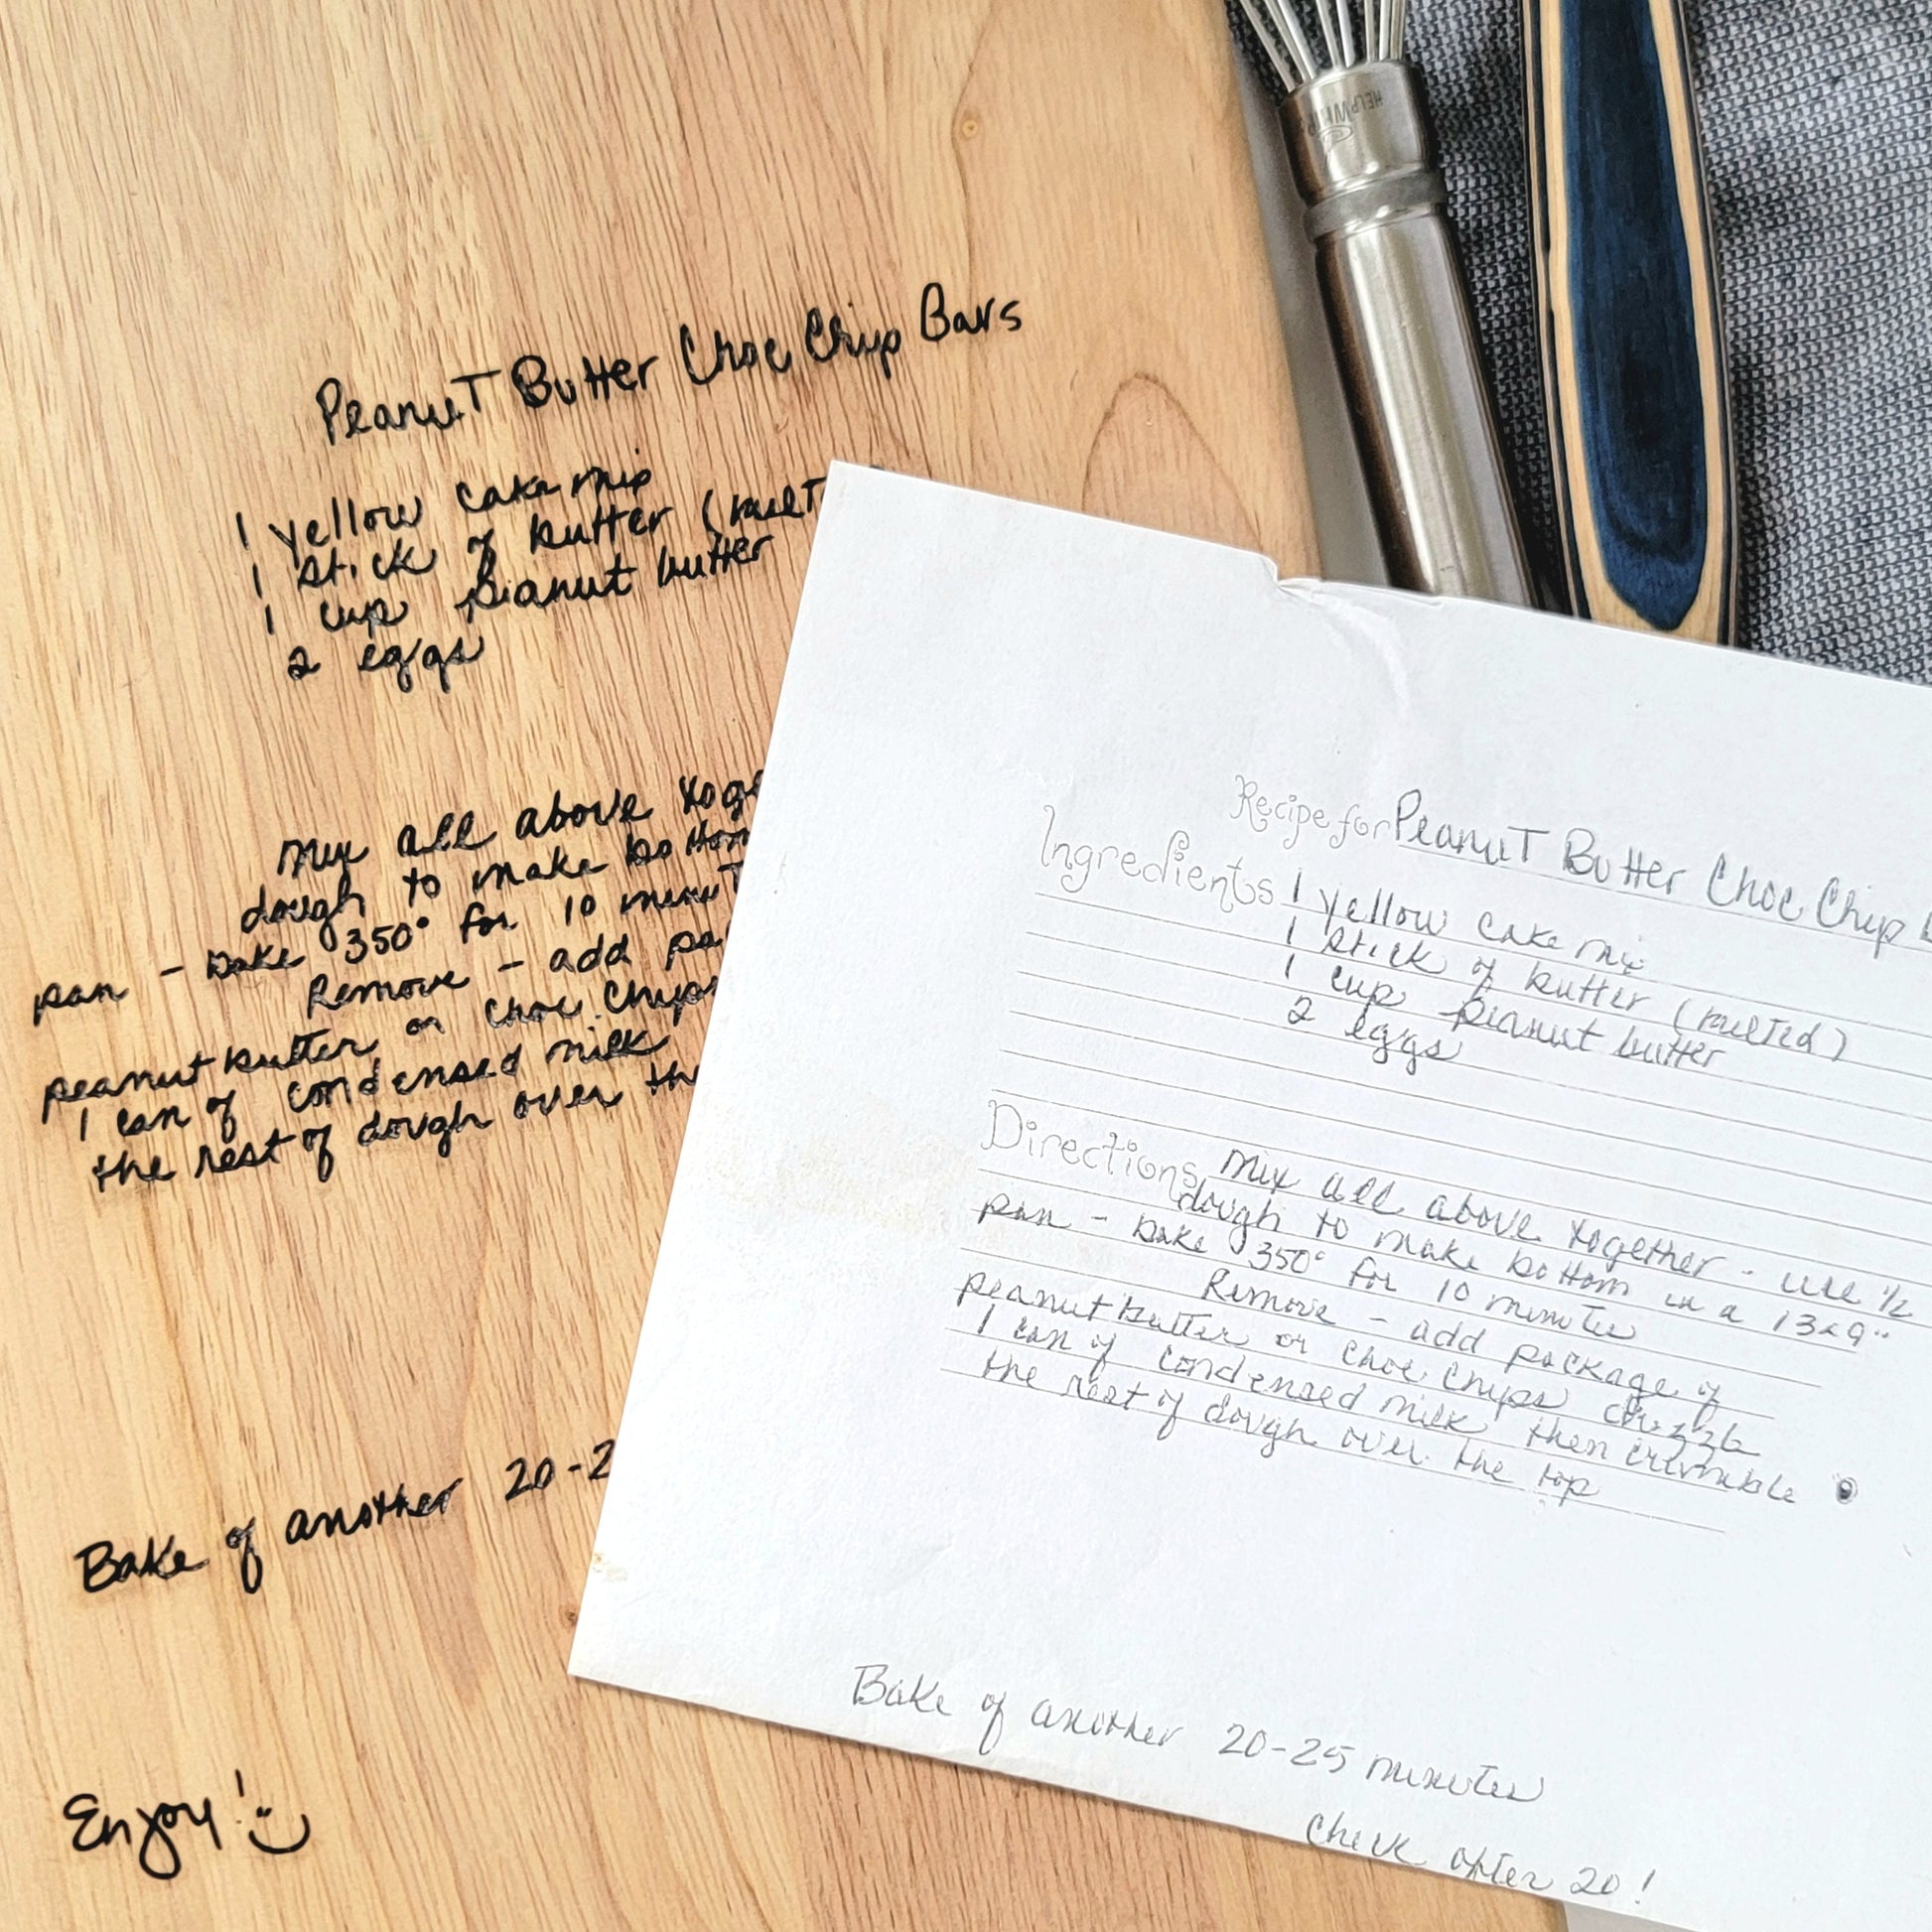 Peanut Butter Choc Chip Bars
1 yellow cake mix
1 stick of butter (melt
1 cup peanut butter
2 eggs
Mix all above toge
dough to make bottom
pan - Bake 350° for 10 minut
Remove - add pa
peanut butter or choc. Chips
1 can of condensed milk
the rest of dough over th
Bake of another 20-2
Enjoy!
HELPW
Recipe for Peanut Butter Choc Chip B
Ingredients 1 yellow cake mix
1 stick of butter (melted)
1 cup peanut butter
2 eggs
Directions Mix all above together - use 1/2
dough to make bottom in a 13x9"
pan - Bake 350° for 10 minutes
Remove - add package of
peanut butter or choc. Chips drizzle
1 can of condensed milk then crumble
the rest of dough over the top
Bake of another 20-25 minutes
Check after 20!